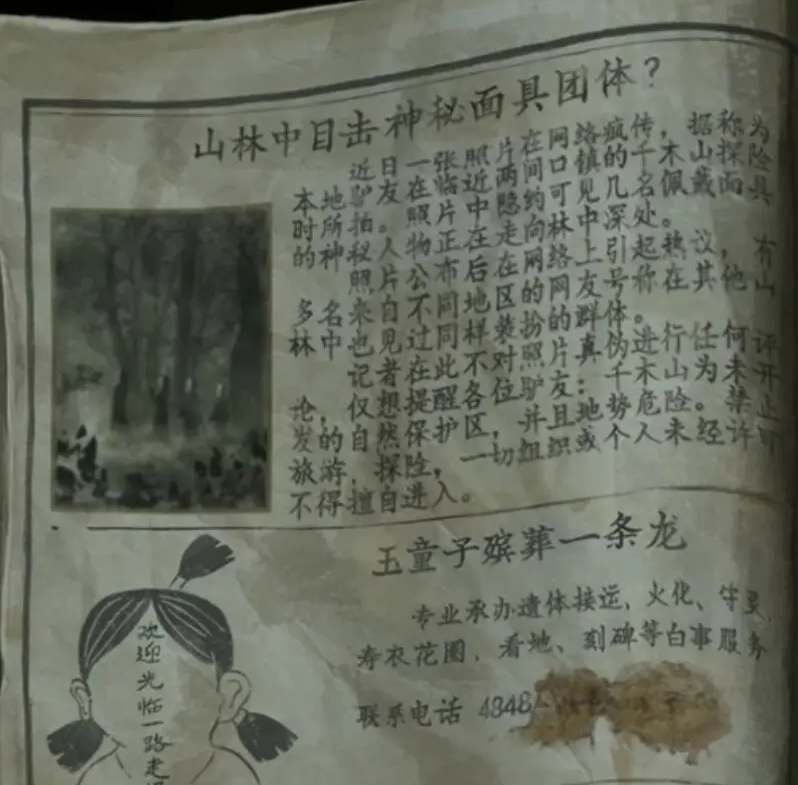 山林中目击神秘面具团体？
近日一张照片在网络疯传，据称为
本地驴友在临近两间口镇的千木山探险
时所拍。照片中隐约可见几名佩戴面具
的神秘人物正在走向林中深处。
照片公布后在网络上引起热议，有
多名来自不同地区的网友号称在其他山
林中也见过同样装扮的群体。
记者在此不对照片真伪进行任何评
论，仅想提醒各位驴友：千木山为未开
发的自然保护区，并且地势危险。禁止
旅游，探险，一切组织或个人未经许可
不得擅自进入。
玉童子殡葬一条龙
专业承办遗体接运、火化、守灵、
寿衣花圈、看地、刻碑等白事服务
联系电话 4848
欢迎光临一路走